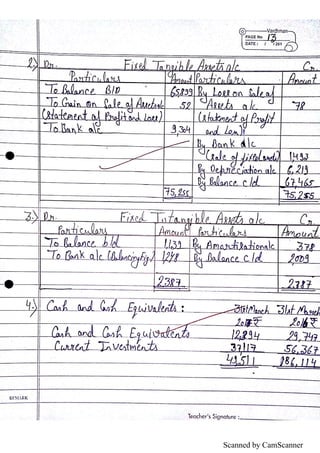 Vardhman
PAGE NO. 13
DATE : / /201
2.) Dr. Fixed Tangible Assets a/c Cr.
Particulars Amount Particulars Amount
To Balance B/D 65899 By Loss on Sale of
To Gain on Sale of Assets 52 Assets a/c 78
(Statement of Profit and Loss) (Statement of Profit
To Bank a/c 9,304 and Loss)
By Bank a/c
(Sale of fixed assets) 1,493
By Depreciation a/c 6,219
By Balance c/d 67,465
75,255 75,255
3.) Dr. Fixed Intangible Assets a/c Cr.
Particulars Amount Particulars Amount
To Balance b/d 1139 By Amortization a/c 378
To Bank a/c (Balancing Fig) 1248 By Balance c/d 2009
2387 2387
4.) Cash and Cash Equivalents : 31st March 31st March
2017 ₹ 2016 ₹
Cash and Cash Equivalents 12,394 29,747
Current Investments 37117 56,367
49,511 86,114
REMARK
Teacher's Signature :
Scanned by CamScanner